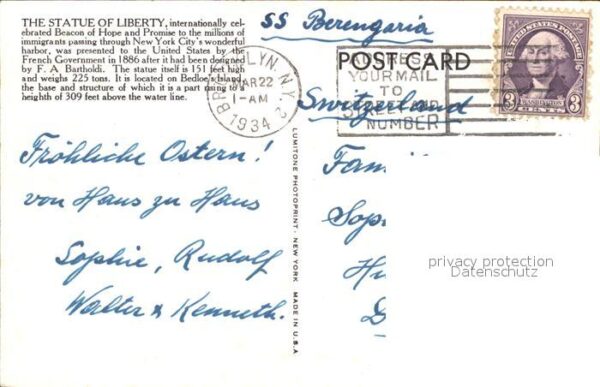 THE STATUE OF LIBERTY, internationally cel-
ebrated Beacon of Hope and Promise to the millions of
immigrants passing through New York City's wonderful
harbor, was presented to the United States by the
French Government in 1886 after it had been designed
by F. A. Bartholdi. The statue itself is 151 feet high
and weighs 225 tons. It is located on Bedloe's Island
the base and structure of which it is a part rising to a
height of 309 feet above the water line.
Fröhliche Ostern!
von Haus zu Haus
Sophie, Rudolf
Walter & Kenneth.
LUMITONE PHOTOPRINT · NEW YORK MADE IN U.S.A.
SS Berengaria
POST CARD
BROOKLYN, N.Y. 2
MAR 22
-AM
1934
YOUR MAIL
TO
STREET AND
NUMBER
UNITED STATES POSTAGE
WASHINGTON
3 CENTS 3
Switzerland
Fam
Sop
Hu
privacy protection
Datenschutz